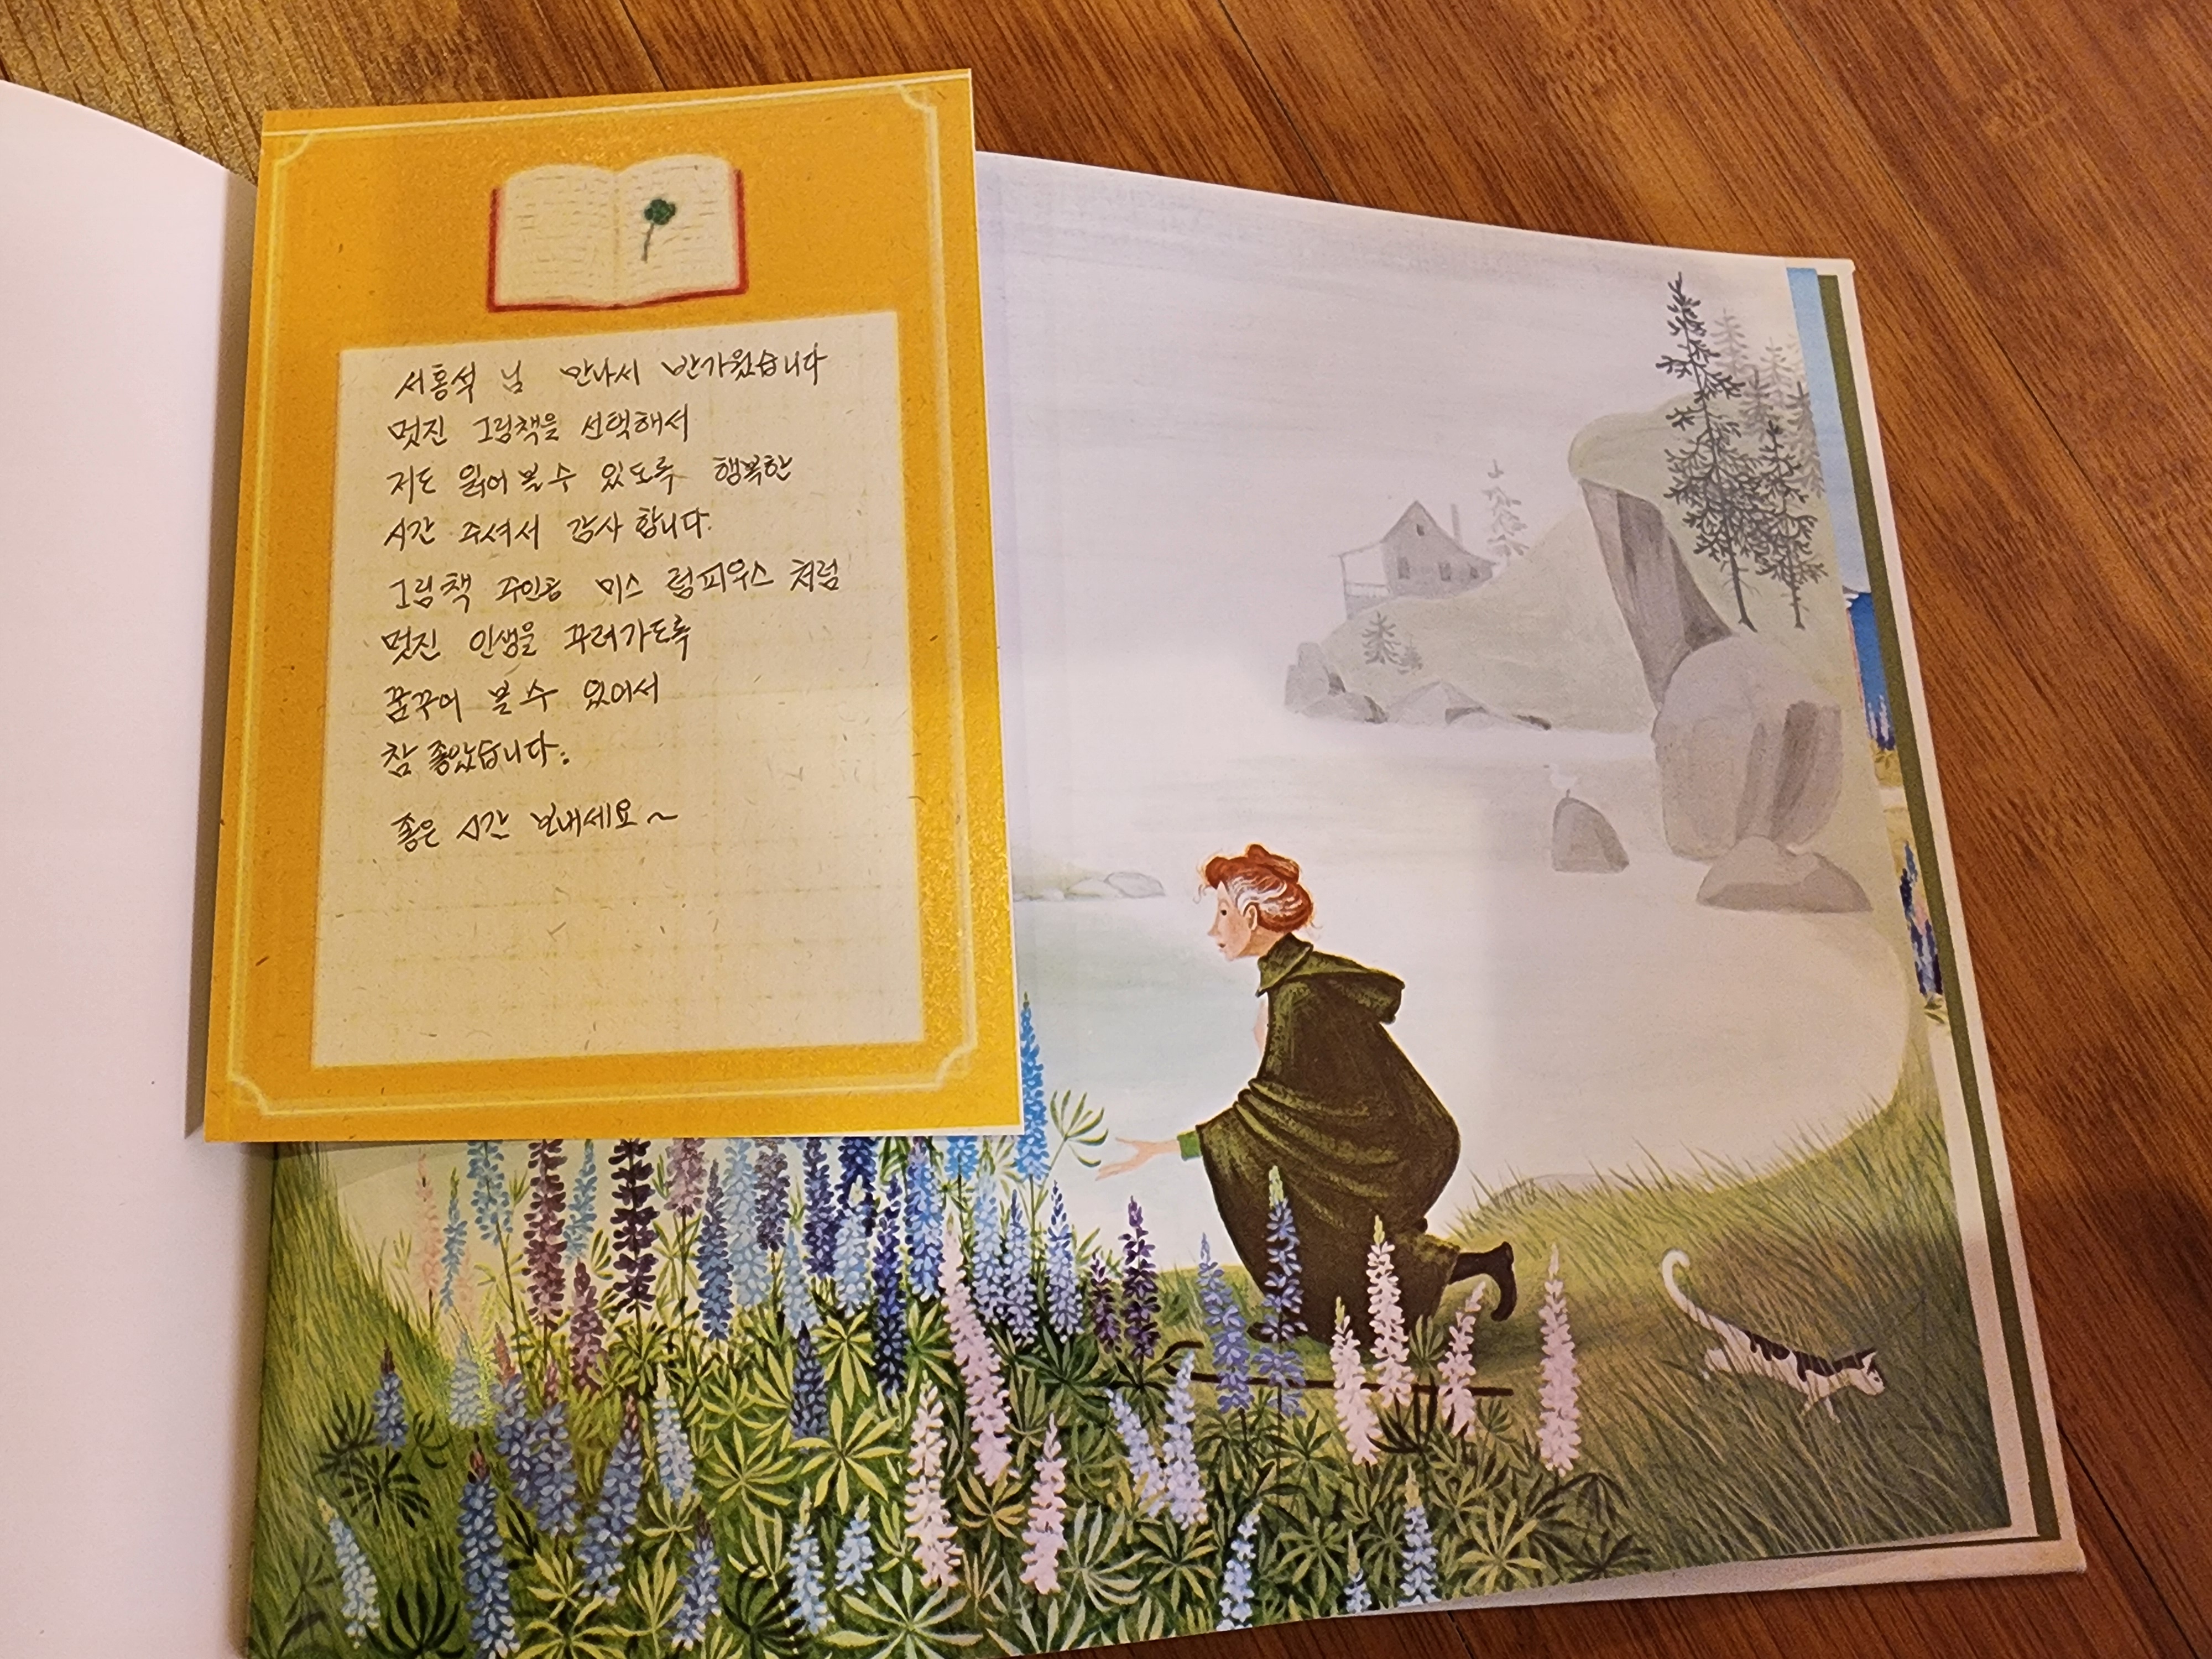 서홍석 님 만나서 반가웠습니다
멋진 그림책을 선택해서
저도 읽어 볼 수 있도록 행복한
시간 주셔서 감사 합니다.
그림책 주인공 미스 럼피우스 처럼
멋진 인생을 꾸려가도록
꿈꾸어 볼 수 있어서
참 좋았습니다.
좋은 시간 보내세요~